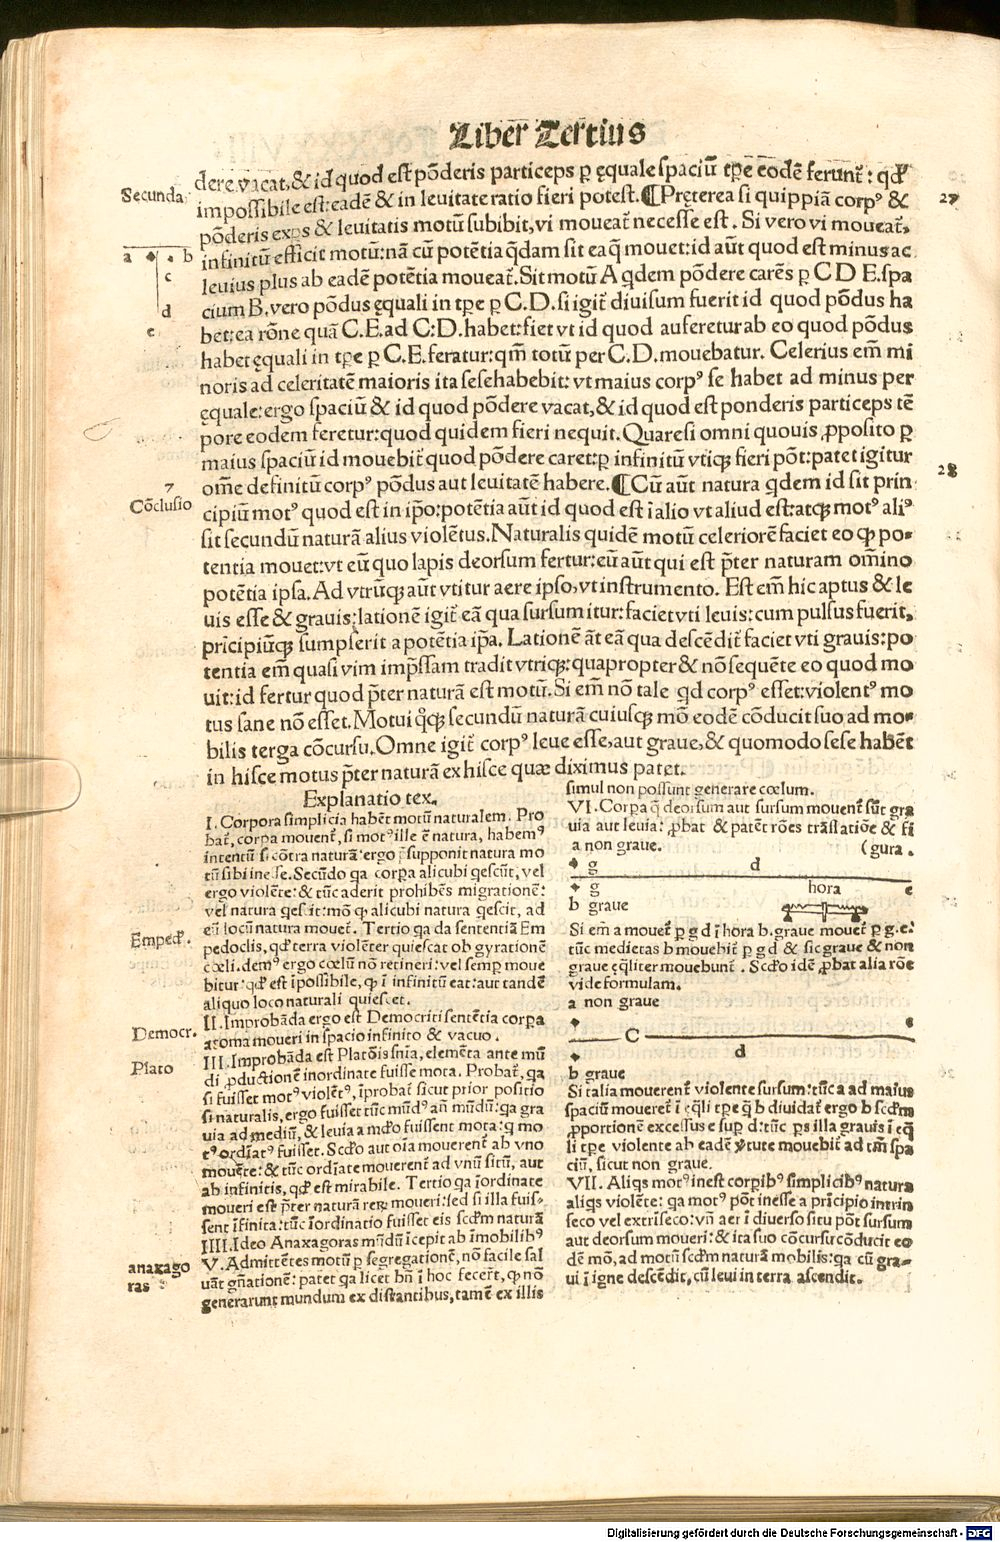 Liber Tertius
Secunda
dere vacat,& id quod est põderis particeps ꝑ ęquale spaciũ tꝑe eodẽ ferunt᷑: qđ
impossibile est: eadẽ & in leuitate ratio fieri potest.¶Pręterea si quippiã corpꝰ &
27
põderis exꝑs & leuitatis motũ subibit,vi moueat᷑ necesse est. Si vero vi moueat᷑,
a b
c
d
e
infinitũ efficit motũ: nã cũ potẽtia q̇dam sit eaq̇ mouet: id aũt quod est minus ac
leuius plus ab eadẽ potẽtia moueat᷑. Sit motũ A q̇dem põdere carẽs ꝑ C D E. spa
cium B. vero põdus ęquali in tꝑe ꝑ C.D. si igit᷑ diuisum fuerit id quod põdus ha
bet: ea rõne quã C.E. ad C:D. habet: fiet vt id quod aufereturab eo quod põdus
habet ęquali in tꝑe ꝑ C.E. feratur: qm̃ totũ per C.D. mouebatur. Celerius em̃ mi
noris ad celeritatẽ maioris ita sese habebit: vt maius corpꝰ se habet ad minus per
ęquale: ergo spaciũ & id quod põdere vacat,& id quod est ponderis particeps tẽ
pore eodem feretur: quod quidem fieri nequit. Quare si omni quouis ꝓposito ꝑ
maius spaciũ id mouebit᷑ quod põdere caret: ꝑ infinitũ vtiqꝫ fieri põt: patet igitur
28
7
Cõclusio
om̃e definitũ corpꝰ põdus aut leuitatẽ habere.¶Cũ aũt natura q̇dem id sit prin
cipiũ motꝰ quod est in ip̃o: potẽtia aũt id quod est ĩ alio vt aliud est: atqꝫ motꝰ aliꝰ
sit secundũ naturã alius violẽtus. Naturalis quidẽ motũ celeriorẽ faciet eo ꝙ po-
tentia mouet: vt eũ quo lapis deorsum fertur: eũ aũt qui est p̃ter naturam om̃ino
potẽtia ipsa. Ad vtrũqꝫ aũt vtitur aere ipso, vt instrumento. Est em̃ hic aptus & le
uis esse & grauis: lationẽ igit᷑ eã qua sursum itur: faciet vti leuis: cum pulsus fuerit,
principiũqꝫ sumpserit a potẽtia ip̃a. Lationẽ ãt eã qua descẽdit᷑ faciet vti grauis: po
tentia em̃ quasi vim imp̃ssam tradit vtriqꝫ: quapropter & nõ sequẽte eo quod mo
uit: id fertur quod p̃ter naturã est motũ. Si em̃ nõ tale qd corpꝰ esset: violentꝰ mo
tus sane nõ esset. Motui q̊qꝫ secundũ naturã cuiusqꝫ mõ eodẽ cõducit suo ad mo-
bilis terga cõcursu. Omne igit᷑ corpꝰ leue esse, aut graue,& quomodo sese habẽt
in hisce motus p̃ter naturã ex hisce quæ diximus patet.
Explanatio tex.
I. Corpora simplicia habẽt motũ naturalem. Pro
bat᷑, corpa mouent᷑, si motꝰ ille ẽ natura, habemꝰ
intentũ si cõtra naturã: ergo p̃supponit natura mo
tũ sibi inesse. Secũdo qa corꝑa alicubi qescũt, vel
ergo violẽte: & tũc aderit prohibẽs migrationẽ:
vel natura qescit: mõ ꝙ alicubi natura qescit, ad
eũ locũ natura mouet᷑. Tertio qa da sententiã Em
Empedĩ.
pedoclis, qđ terra violẽter quiescat ob gyrationẽ
cœli. demꝰ ergo cœlũ nõ retineri: vel semꝑ moue
bitur: qđ est ĩpossibile, ꝙ ĩ infinitũ eat: aut tandẽ
aliquo loco naturali quiescet.
II. Improbãda ergo est Democriti sentẽtia corꝑa
Democr.
atoma moueri in spacio infinito & vacuo.
Plato
III. Improbãda est Platõis sñia, elemẽta ante mũ
di ꝓductionẽ inordinate fuisse mota. Probat᷑, qa
si fuisset motꝰ violẽtꝰ, ĩprobat᷑ sicut prior positio
si naturalis, ergo fuisset tũc mũdꝰ añ mũdũ: qa gra
uia ad mediũ, & leuia a mđo fuissent mota: q mo
tꝰ ordĩatꝰ fuisset. Scđo aut oĩa mouerent᷑ ab vno
mouẽte: & tũc ordĩate mouerent᷑ ad vnũ sitũ, aut
ab infinitis, qđ est mirabile. Tertio qa ĩordinate
moueri est p̃ter naturã reꝝ moueri: sed si illa fuis-
sent ĩfinita: tũc ĩordinatio fuisset eis scđm naturã
IIII. Ideo Anaxagoras mũdũ ĩcepit ab ĩmobilibꝰ
anaxago
ras
V. Admittẽtes motũ ꝑ segregationẽ, nõ facile sal
uãt gñationẽ: patet qa licet bñ ĩ hoc fecer̃t, ꝙ nõ
generarunt mundum ex distantibus, tamẽ ex illis
simul non possunt generare cœlum.
VI. Corpa q̃ deorsum aut sursum mouent᷑ sũt gra
uia aut leuia: ꝓbat & patẽt rões trãslatiõe & fi
a non graue. (gura.
g d
g hora e
b graue
Si em̃ a mouet᷑ ꝑ g d ĩ hora b. graue mouet᷑ ꝑ g.e:
tũc medietas b mouebit᷑ ꝑ g d & sic graue & non
graue ęq̃liter mouebunt᷑. Scđo idẽ ꝓbat alia rõe
vide formulam.
a non graue
e
C
d
b graue
Si talia mouerent᷑ violente sursum: tũc a ad maius
spaciũ moueret᷑ ĩ ęq̃li tꝑe q̃ b diuidat᷑ ergo b scđm
ꝓportionẽ excessus e suꝑ d: tũc ꝑs illa grauis ĩ ęq̃
li tꝑe violente ab eadẽ ꝟtute mouebit᷑ ad tm̃ spa
ciũ, sicut non graue.
VII. Aliqs motꝰ inest corpibꝰ simplicibꝰ natura
aliqs violẽte: qa motꝰ põt inesse a prĩcipio intrin
seco vel extrĩseco: vñ aer ĩ diuerso situ põt sursum
aut deorsum moueri: & ita suo cõcursu cõducit eo
dẽ mõ, ad motũ scđm naturã mobilis: qa cũ gra-
ui ĩ igne descẽdit, cũ leui in terra ascendit.
Digitalisierung gefördert durch die Deutsche Forschungsgemeinschaft - DFG